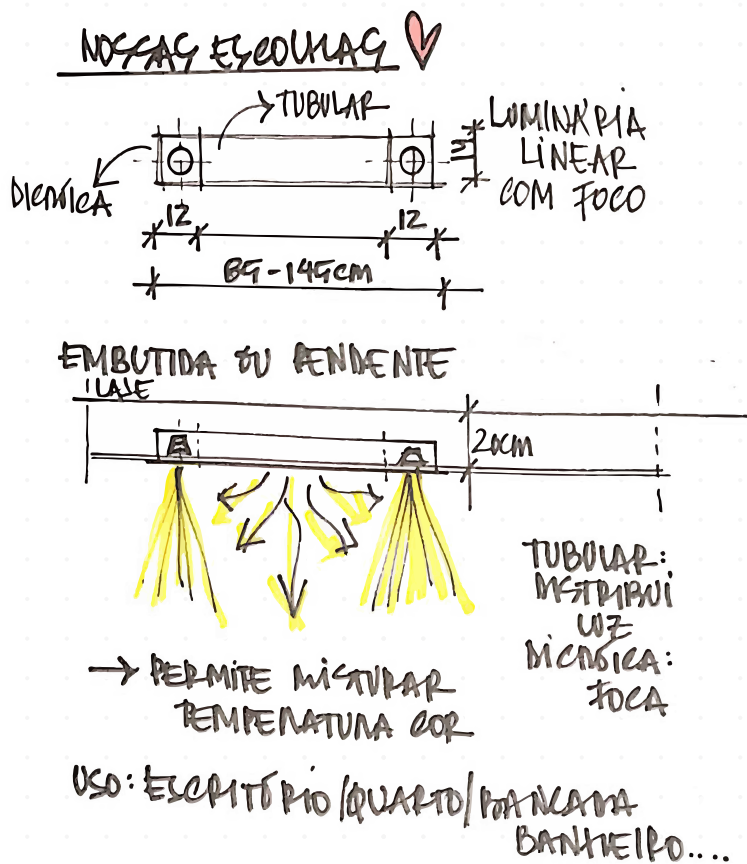 NOSSAS ESCOLHAS
TUBULAR
DICRÓICA
LUMINÁRIA
LINEAR
COM FOCO
12
12
85-145cm
EMBUTIDA OU PENDENTE
LAJE
20cm
TUBULAR:
DISTRIBUI
LUZ
DICRÓICA:
FOCA
→ PERMITE MISTURAR
TEMPERATURA COR
USO: ESCRITÓRIO/QUARTO/BANCADA
BANHEIRO....